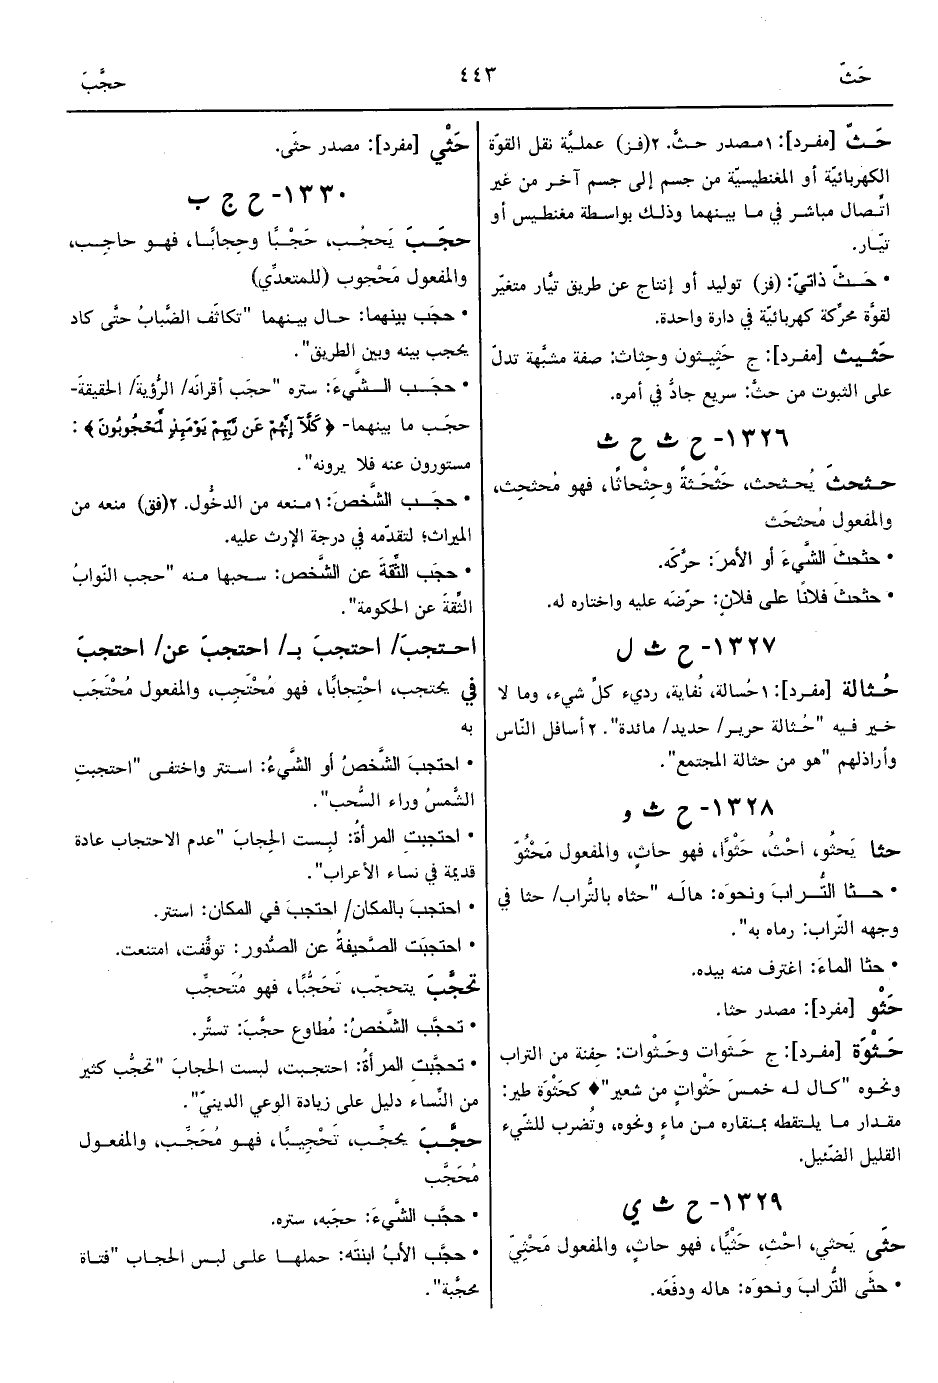 حَثّ
٤٤٣
حجَّبَ
حَــثّ [مفرد]: ١مـصدر حـثَّ. ٢(فـز) عمليَّة نقل القوّة
الكهربائيّة أو المغنطيسيّة من جسم إلى جسم آخـر من غير
اتِّصال مباشر في ما بينهما وذلـك بواسطة مغنطيس أو
تيّـار.
• حَــثّ ذاتيّ: (فز) توليد أو إنتاج عن طريق تيَّار متغيِّر
لقوَّة محرِّكة كهربائيّة في دارة واحدة.
حَثـيث [مفرد]: ج حَثِيثون وحِثاث: صفة مشبَّهة تدلّ
على الثبوت من حثَّ: سريع جادٌّ في أمره.
١٣٢٦- ح ث ح ث
حـثحثَ يُحـثحث، حَثْحَثةً وحِثْحاثًا، فهو مُحثحِث،
والمفعول مُحثحَث
• حثحثَ الشَّيءَ أو الأمرَ: حرَّكه.
• حثحثَ فلانًا على فلانٍ: حرّضَه عليه واختاره له.
١٣٢٧- ح ث ل
حُـثالة [مفـرد]: ١حُسالة، نُفاية، رديء كلّ شيء، وما لا
خـير فيه "حُثالة حرير/ حديد/ مائدة". ٢أسافل النّاس
وأراذلهم "هو من حثالة المجتمع".
١٣٢٨- ح ث و
حثا يَحثُو، احْثُ، حَثْوًا، فهو حاثٍ، والمفعول مَحْثُوّ
• حــثا التُّــرابَ ونحوَه: هالَـه "حثاه بالتُّراب/ حثا في
وجهه التّراب: رماه به".
• حثا الماءَ: اغترف منه بيده.
حَثْو [مفرد]: مصدر حثا.
حَـثْوَة [مفـرد]: ج حَـثَوات وحَـثْوات: حِفنة من التراب
ونحوه "كـال لـه خمـسَ حَثْواتٍ من شعير"♦ كحَثْوَة طير:
مقـدار مـا يلـتقطه بمـنقاره مـن ماءٍ ونحوِه، وتُضرب للشَّيء
القليل الضّئيل.
١٣٢٩- ح ث ي
حثَى يَحثي، احْثِ، حَثْيًا، فهو حاثٍ، والمفعول مَحْثِيّ
• حثَى التُّرابَ ونحوَه: هاله ودفَعَه.
حَثْي [مفرد]: مصدر حثَى.
١٣٣٠- ح ج ب
حجَـبَ يَحجُـب، حَجْـبًا وحِجابًـا، فهـو حاجِـب،
والمفعول مَحْجوب (للمتعدِّي)
• حجَب بينهما: حـال بيـنهما "تكاثَف الضَّبابُ حتَّى كاد
يحجب بينه وبين الطريق".
• حجَــب الــشَّيءَ: ستره "حجَب أقرانَه/ الرُّؤيةَ/ الحقيقةَ-
حجَـب مـا بينهما- ﴿كَلَّآ إِنَّهُمْ عَن رَّبِّهِمْ يَوْمَئِذٍ لَّمَحْجُوبُونَ﴾:
مستورون عنه فلا يرونه".
• حجَـــب الشَّخصَ: ١مـنعه من الدخُول. ٢(فق) منعه من
الميراث؛ لتقدّمه في درجة الإرث عليه.
• حجَب الثِّقةَ عن الشَّخص: سـحبها منـه "حجب النّوابُ
الثّقةَ عن الحكومة".
احـتجبَ/ احتجبَ بـ/ احتجبَ عن/ احتجبَ
في يحتجب، احْتِجابًا، فهو مُحْتَجِب، والمفعول مُحْتَجَب
به
• احتجبَ الشَّخصُ أو الشَّيءُ: استتر واختفى "احتجبتِ
الشَّمسُ وراء السُّحب".
• احتجبتِ المرأةُ: لبِست الحِجابَ "عدم الاحتجاب عادة
قديمة في نساء الأعراب".
• احتجبَ بالمكان/ احتجبَ في المكان: استتر.
• احتجبَت الصَّحيفةُ عن الصُّدور: توقَّفت، امتنعت.
تحجَّبَ يتحجّب، تَحَجُّبًا، فهو مُتَحجِّب
• تحجَّب الشَّخصُ: مُطاوع حجَّبَ: تستَّر.
• تحجَّبتِ المرأةُ: احتجبت، لبست الحجابَ "تحجُّب كثير
من النِّساء دليل على زيادة الوعي الدينيّ".
حجَّـبَ يحجِّـب، تَحْجِيـبًا، فهـو مُحَجِّـب، والمفعـول
مُحَجَّب
• حجَّب الشَّيءَ: حجَبه، ستره.
• حجَّب الأبُ ابنتَه: حملـها علـى لبـس الحجاب "فتاة
محجَّبة".